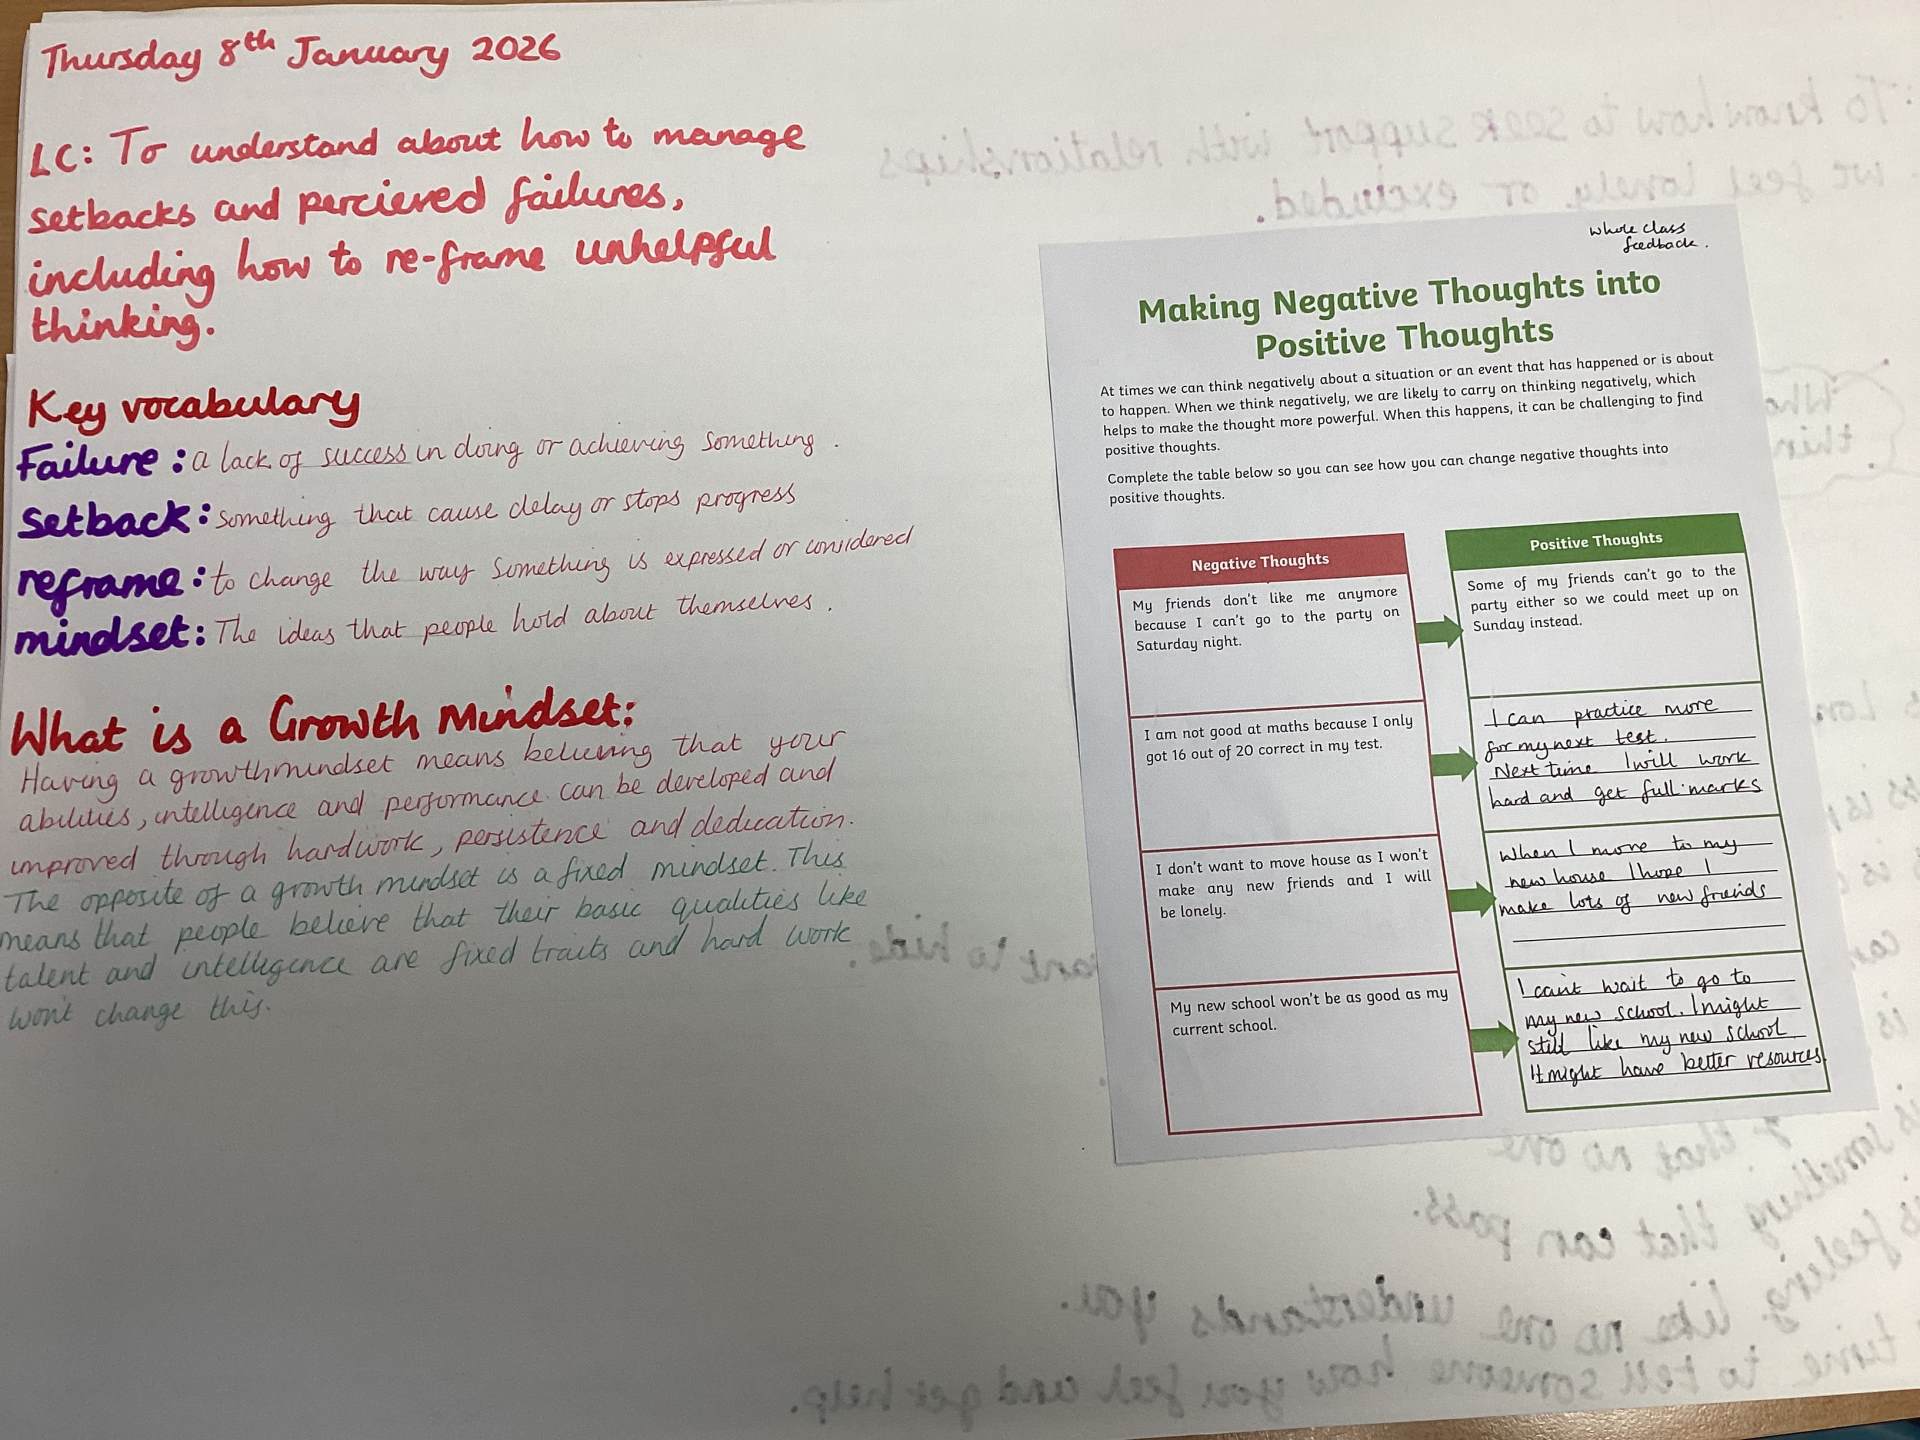 Thursday 8th January 2026
LC: To understand about how to manage
setbacks and percieved failures,
including how to re-frame unhelpful
thinking.
Key vocabulary
Failure: a lack of success in doing or achieving something.
Setback: something that cause delay or stops progress
reframe: to change the way something is expressed or considered
mindset: The ideas that people hold about themselves.
What is a Growth Mindset:
Having a growthmindset means believing that your
abilities, intelligence and performance can be developed and
improved through hardwork, persistence and dedication.
The opposite of a growth mindset is a fixed mindset. This
means that people believe that their basic qualities like
talent and intelligence are fixed traits and hard work
won't change this.
whole class
feedback.
Making Negative Thoughts into
Positive Thoughts
At times we can think negatively about a situation or an event that has happened or is about
to happen. When we think negatively, we are likely to carry on thinking negatively, which
helps to make the thought more powerful. When this happens, it can be challenging to find
positive thoughts.
Complete the table below so you can see how you can change negative thoughts into
positive thoughts.
Negative Thoughts
My friends don't like me anymore
because I can't go to the party on
Saturday night.
I am not good at maths because I only
got 16 out of 20 correct in my test.
I don't want to move house as I won't
make any new friends and I will
be lonely.
My new school won't be as good as my
current school.
Positive Thoughts
Some of my friends can't go to the
party either so we could meet up on
Sunday instead.
I can practice more
for my next test.
Next time I will work
hard and get full marks
When I move to my
new house I hope I
make lots of new freinds
I can't wait to go to
my new school. I might
still like my new school
It might have better resources.
To know how to seek support with relationships
we feel lonely or excluded.
want to hide.
that no one
something that can pass.
feeling like no one understands you.
time to tell someone how you feel and get help.